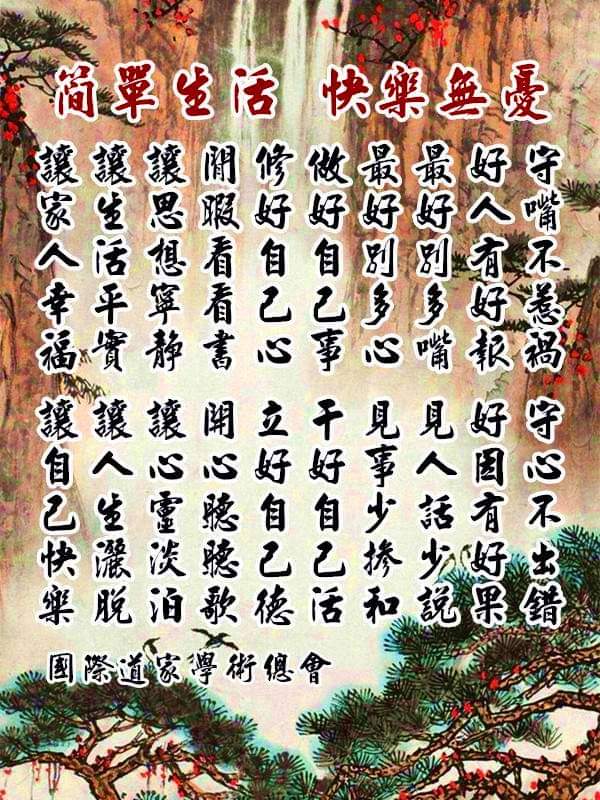 簡單生活 快樂無憂
守嘴不惹禍 守心不出錯
好人有好報 好因有好果
最好別多嘴 見人話少說
最好別多心 見事少摻和
做好自己事 干好自己活
修好自己心 立好自己德
閒暇看看書 開心聽聽歌
讓思想寧靜 讓心靈淡泊
讓生活平實 讓人生灑脫
讓家人幸福 讓自己快樂
國際道家學術總會